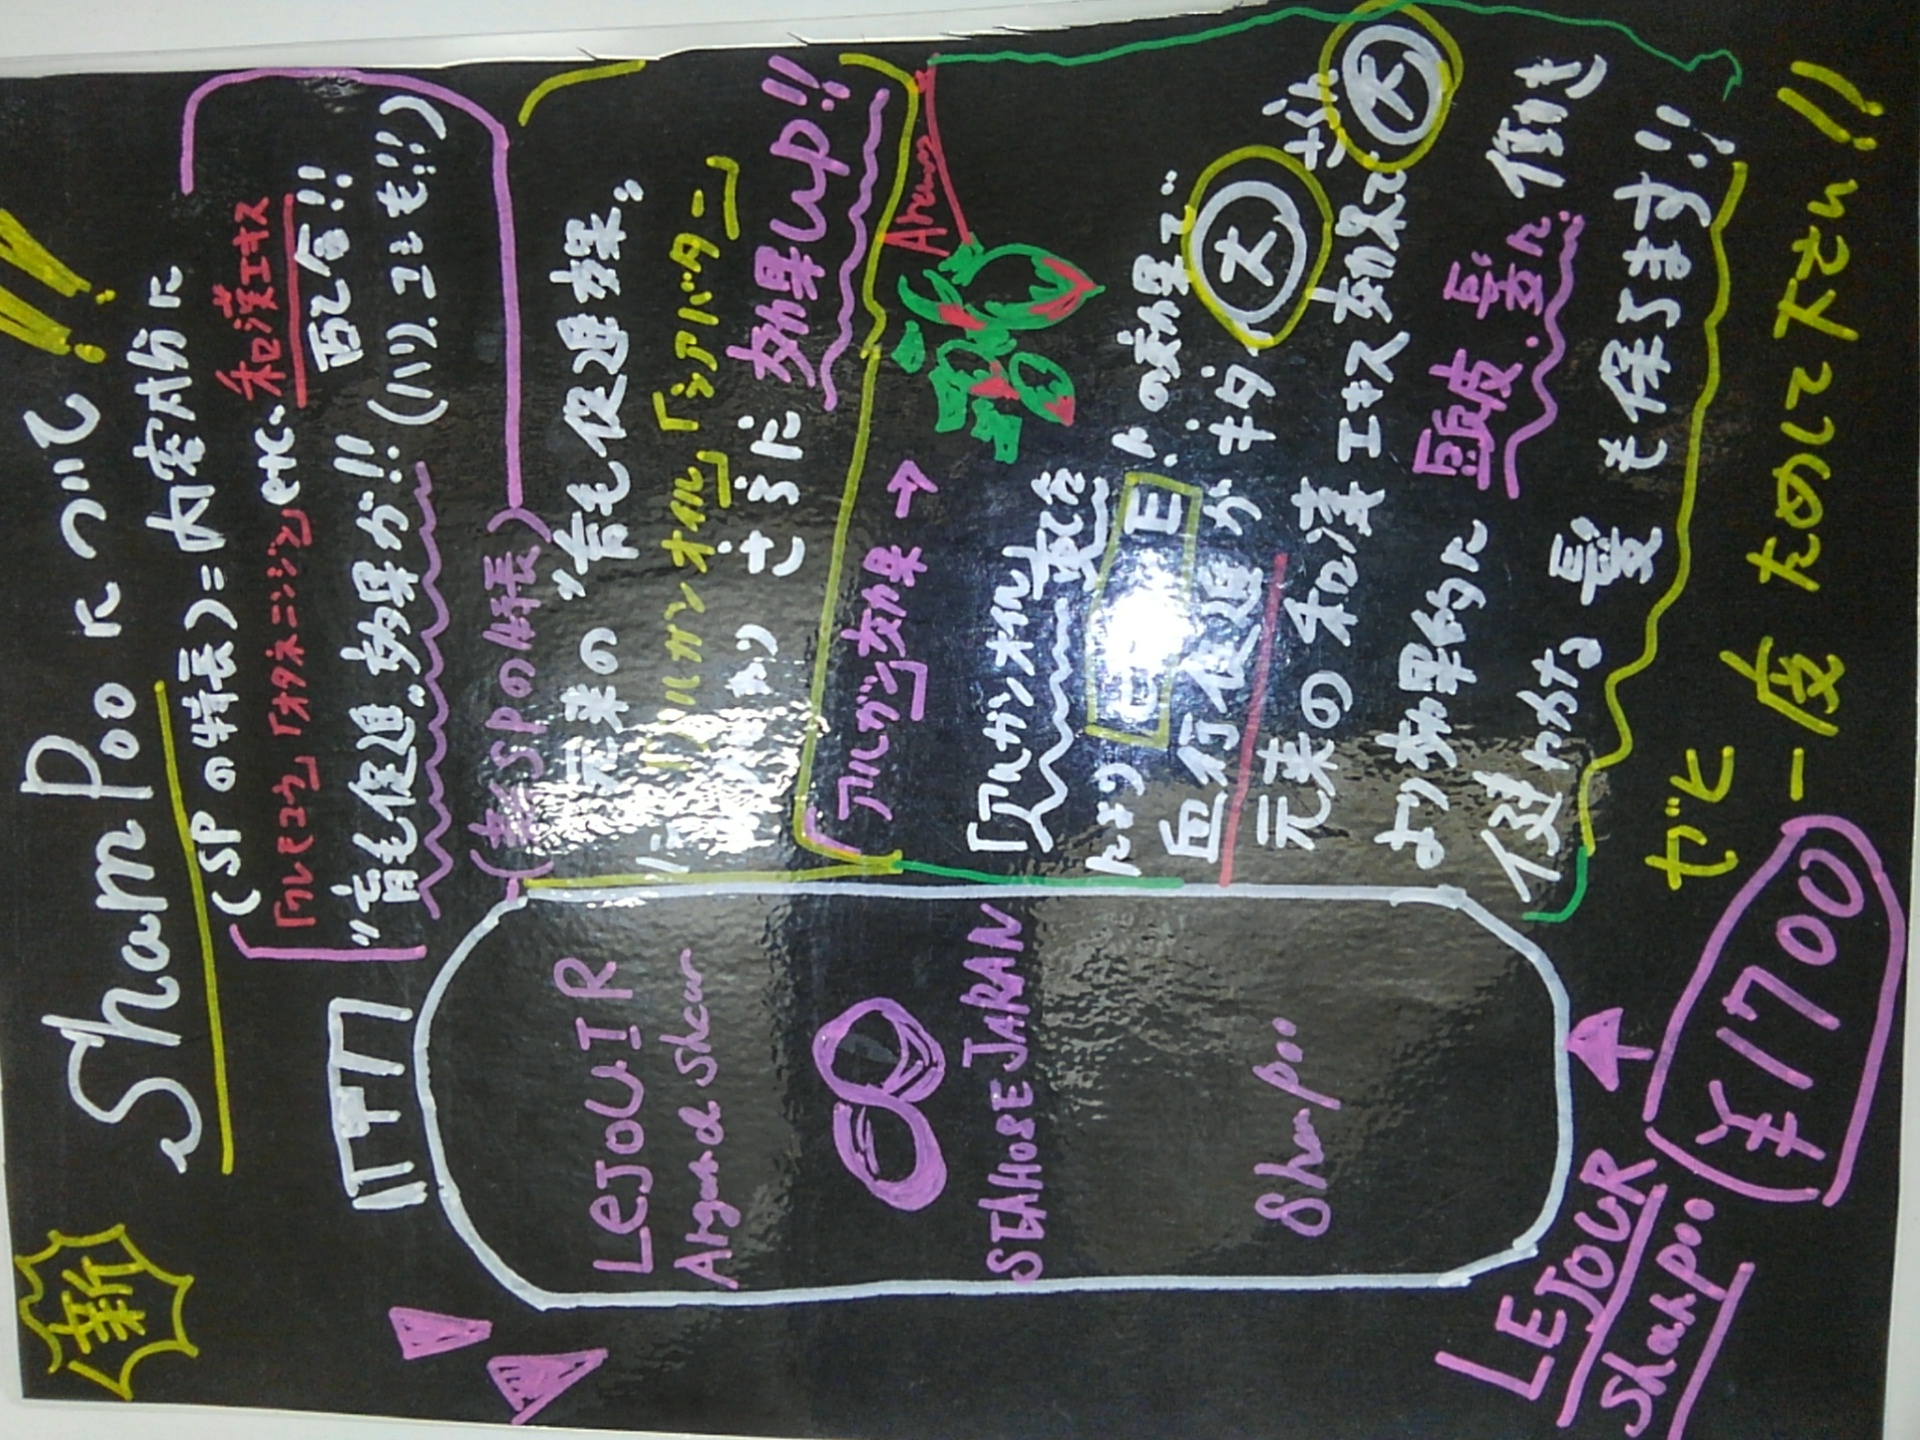 新
Shampoo について!!
(SPの特長)=内容成分に
「ワレモコウ」「オタネニンジン」etc、和漢エキス
配合!!
"育毛促進"効果が!!(ハリ、コシも!!)
SPの特長)
元来の "育毛促進効果"
に「アルガンオイル」「シアバター」
さらに 効果up!!
「アルガン」効果→
Argan
「アルガンオイル」
E の効果で
血行促進が
大
元来の和漢エキス効果で
大
より効果的に 頭皮、髪に 働き
健やかな 髪 も保ちます!!
ゼヒ 一度 ためして下さい!!
LEJOUIR
Argan & Shea
SEAHORSE JAPAN
Shampoo
LEJOUR
Shampoo
(¥1700